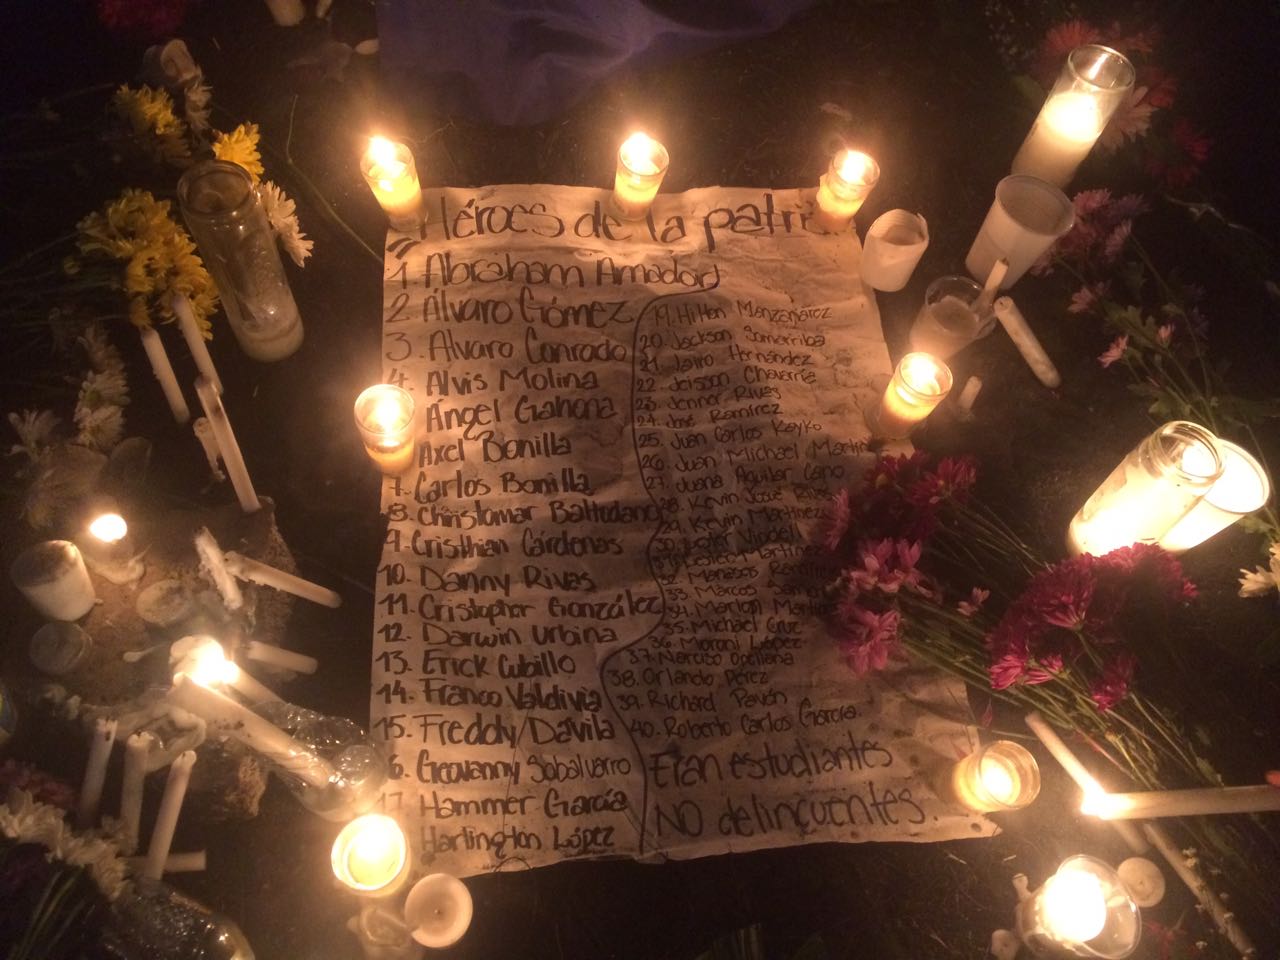 Héroes de la patri
1 Abraham Amador
2 Álvaro Gómez
3. Alvaro Conrado
4. Alvis Molina
Ángel Gahona
Axel Bonilla
7. Carlos Bonilla
8. Christomar Baltodano
9. Cristhian Cárdenas
10. Danny Rivas
11. Cristopher González
12. Darwin Urbina
13. Erick Cubillo
14. Franco Valdivia
15. Freddy Dávila
6. Geovanny Sobalvarro
17. Hammer García
Harlington López
19. Hilton Manzanárez
20. Jackson Somarriba
21. Jairo Hernández
22. Jeisson Chavarría
23. Jenner Rivas
24. José Ramírez
25. Juan Carlos Kayko
26. Juan Michael Martin
27. Juana Aguilar Cano
28. Kevin Josué Rivas
29. Kevin Martínez
30. Lester Vindell
31. Lesleo Martínez
32. Manases Ramíre
33. Marcos Samor
34. Marlon Martin
35. Michael Cruz
36. Moroni López
37. Narciso Orellana
38. Orlando Pérez
39. Richard Pavón
40. Roberto Carlos García.
Eran estudiantes
NO delincuentes.